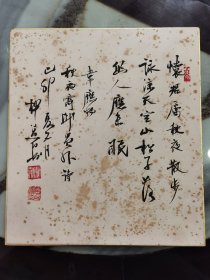 懷君屬秋夜散步
詠涼天空山松子落
幽人應未眠
韋應物
秋夜寄邱員外詩
己卯